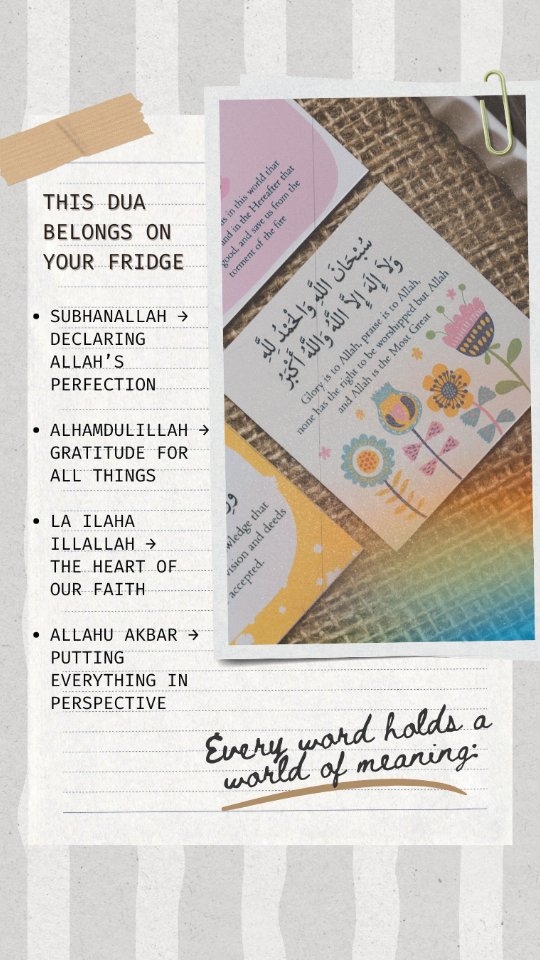 THIS DUA
BELONGS ON
YOUR FRIDGE
SUBHANALLAH →
DECLARING
ALLAH'S
PERFECTION
ALHAMDULILLAH →
GRATITUDE FOR
ALL THINGS
LA ILAHA
ILLALLAH →
THE HEART OF
OUR FAITH
ALLAHU AKBAR →
PUTTING
EVERYTHING IN
PERSPECTIVE
us in this world that
and in the Hereafter that
good, and save us from the
torment of the fire
سُبْحَانَ اللَّهِ وَالْحَمْدُ لِلَّهِ
وَلَا إِلَهَ إِلَّا اللَّهُ وَاللَّهُ أَكْبَرُ
Glory is to Allah, praise is to Allah,
none has the right to be worshipped but Allah
and Allah is the Most Great
wledge that
vision and deeds
accepted.
Every word holds a
world of meaning: